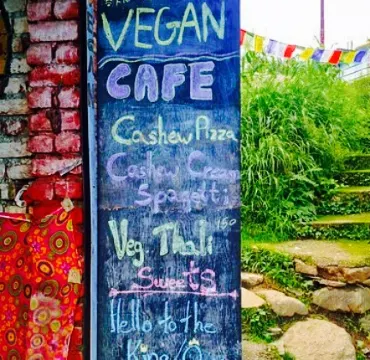 VEGAN
CAFE
Cashew Pizza
Cashew Cream
Spagetti
Veg Thali 150
Sweets
Hello to the
King/